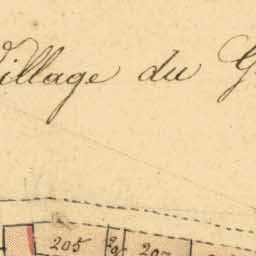 Village du G
205 207